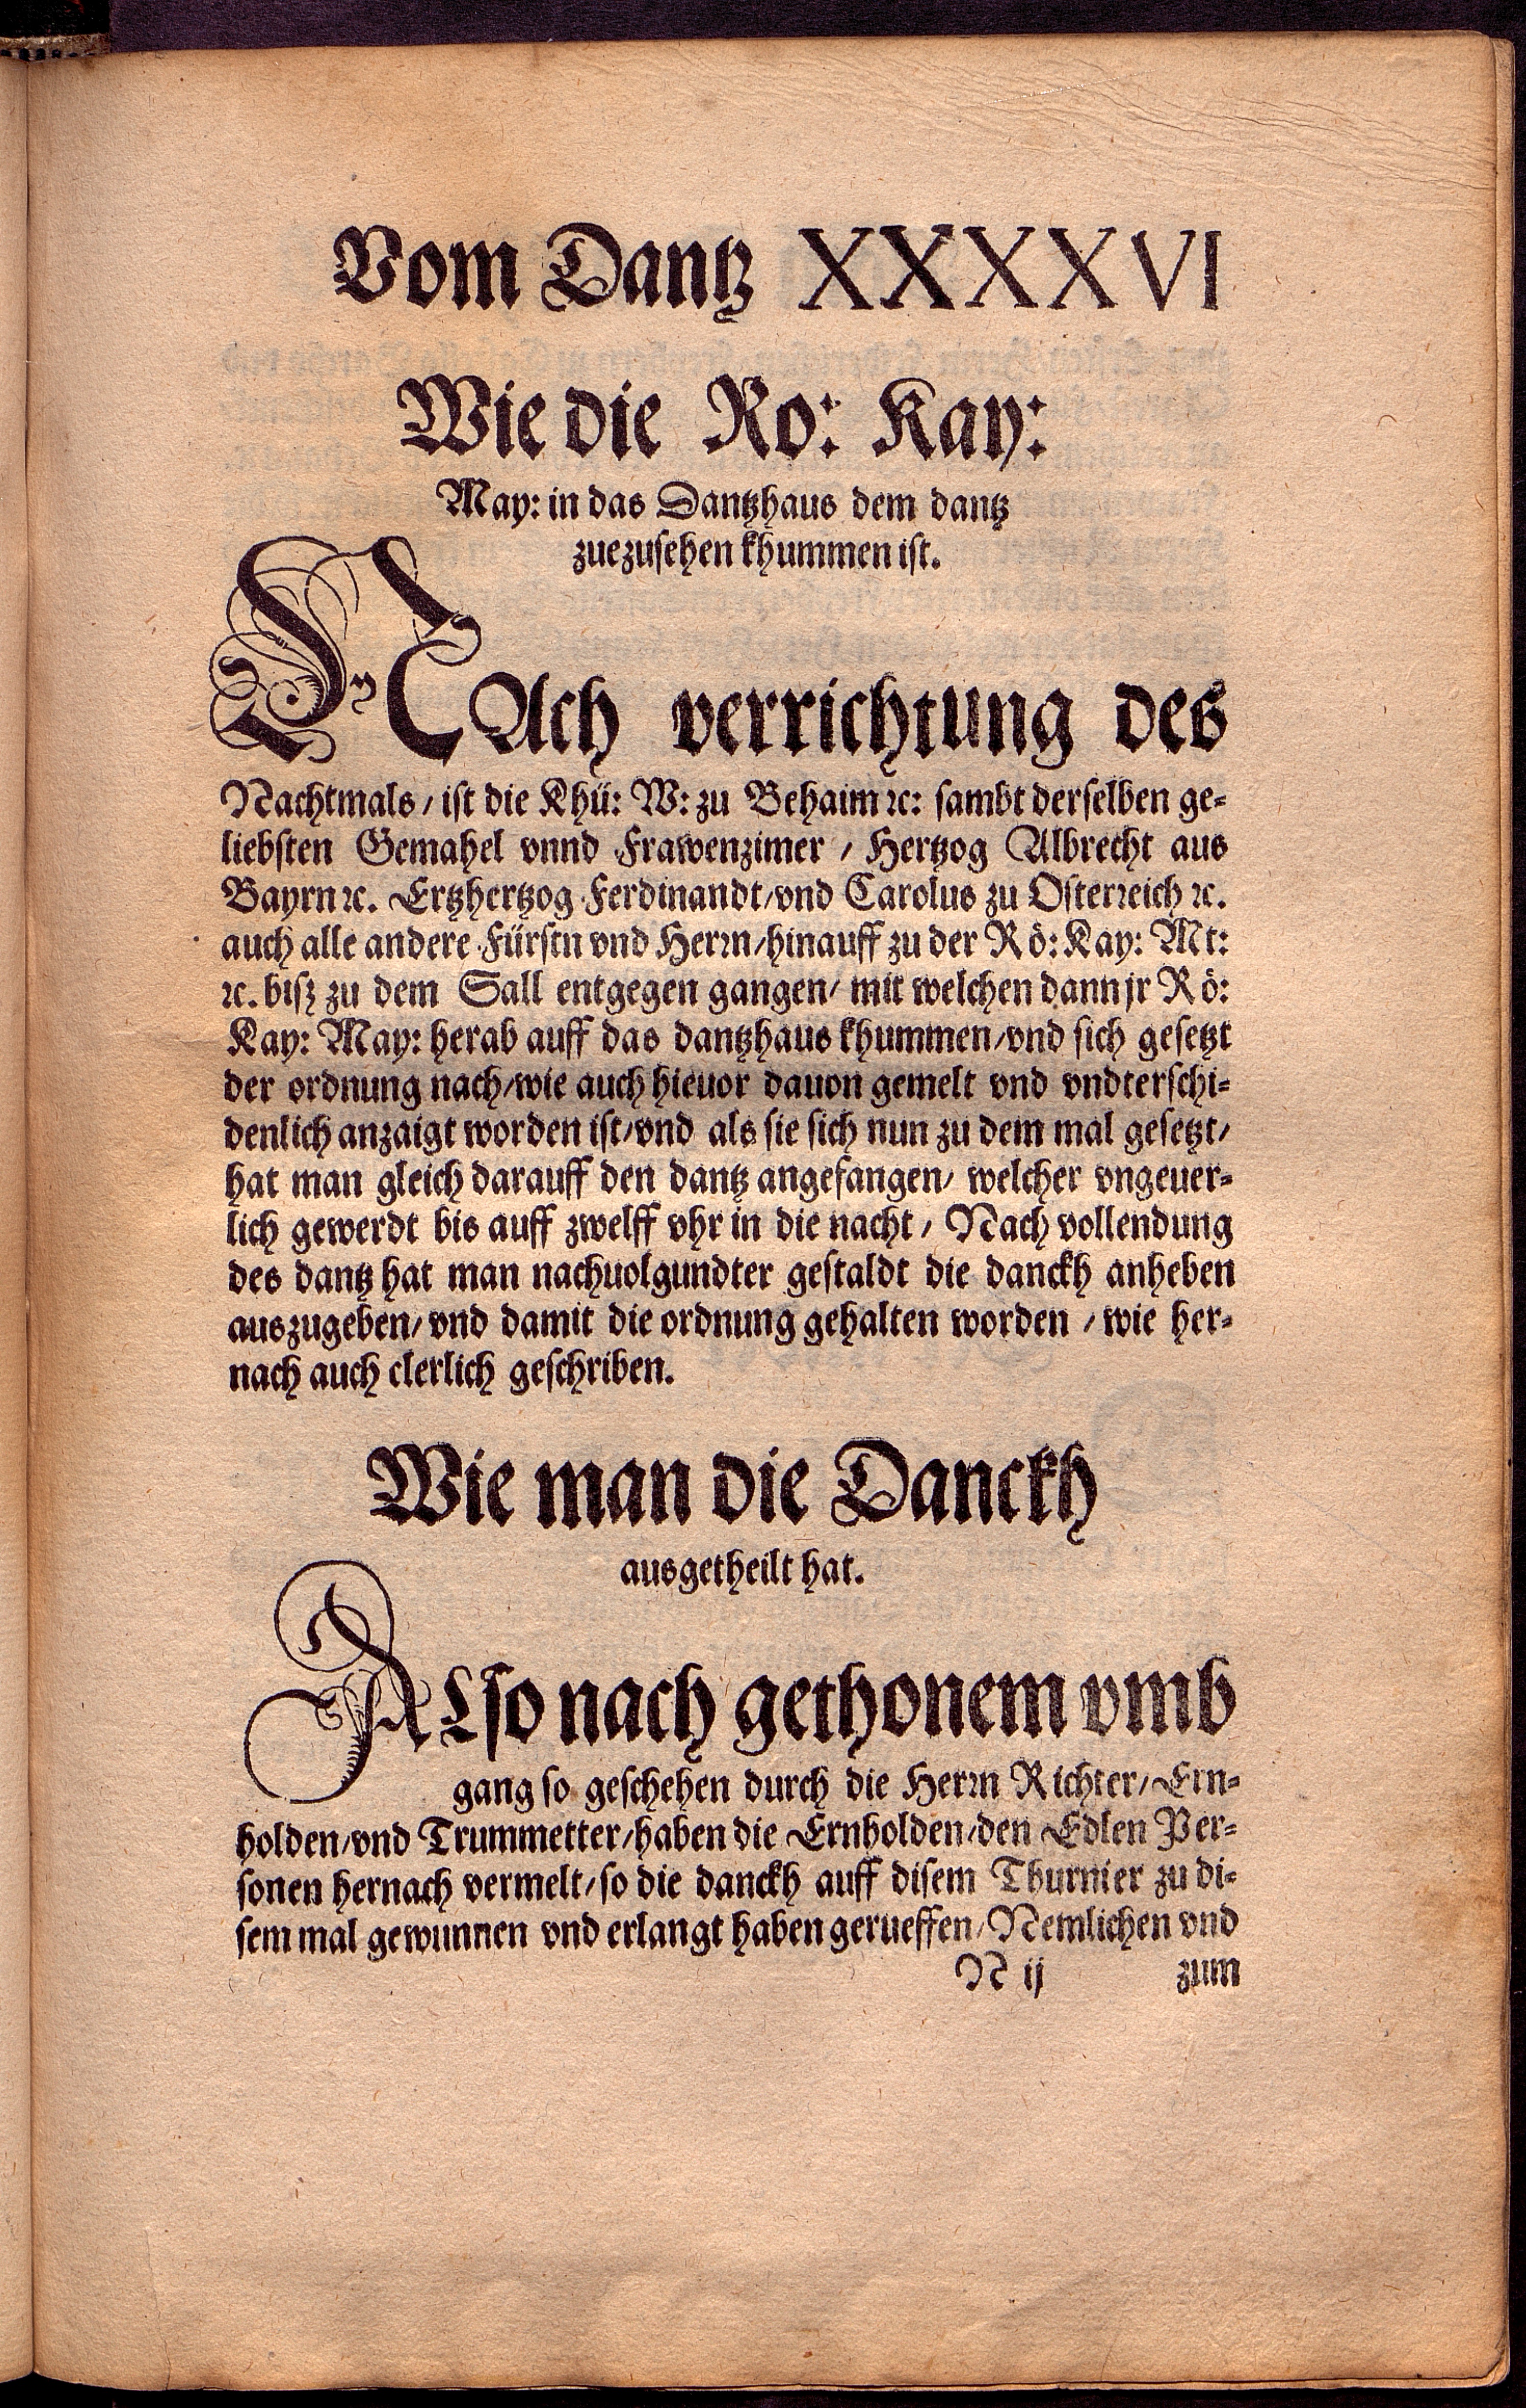 Vom Dantz XXXXVI
Wie die Ro: Kay:
May: in das Dantzhaus dem dantz
zuezusehen khummen ist.
NAch verrichtung des
Nachtmals / ist die Khü: W: zu Behaim ꝛc: sambt derselben ge-
liebsten Gemahel vnnd Frawenzimer / Hertzog Albrecht aus
Bayrn ꝛc. Ertzhertzog Ferdinandt / vnd Carolus zu Osterreich ꝛc.
auch alle andere Fürstn vnd Herrn / hinauff zu der Rö: Kay: Mt:
ꝛc. bisz zu dem Sall entgegen gangen / mit welchen dann jr Rö:
Kay: May: herab auff das dantzhaus khummen / vnd sich gesetzt
der ordnung nach / wie auch hieuor dauon gemelt vnd vndterschi-
denlich anzaigt worden ist / vnd als sie sich nun zu dem mal gesetzt /
hat man gleich darauff den dantz angefangen / welcher vngeuer-
lich gewerdt bis auff zwelff vhr in die nacht / Nach vollendung
des dantz hat man nachuolgundter gestaldt die danckh anheben
auszugeben / vnd damit die ordnung gehalten worden / wie her-
nach auch clerlich geschriben.
Wie man die Danckh
ausgetheilt hat.
ALso nach gethonem vmb
gang so geschehen durch die Herrn Richter / Ern-
holden / vnd Trummetter / haben die Ernholden / den Edlen Per-
sonen hernach vermelt / so die danckh auff disem Thurnier zu di-
sem mal gewunnen vnd erlangt haben gerueffen / Nemlichen vnd
N ij zum